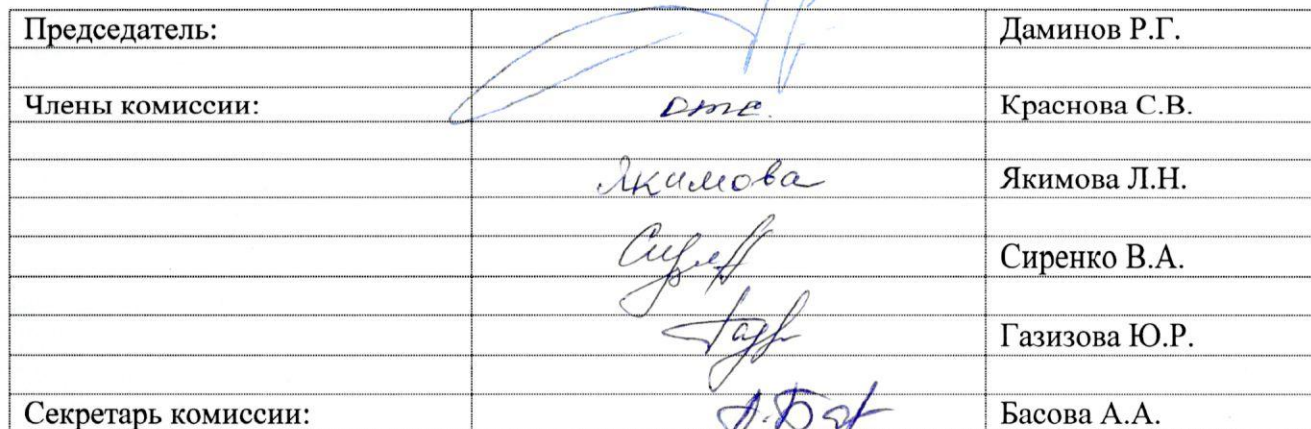 Председатель: Даминов Р.Г.
Члены комиссии: отс. Краснова С.В.
Якимова Якимова Л.Н.
Сиренко В.А.
Газизова Ю.Р.
Секретарь комиссии: Басова А.А.